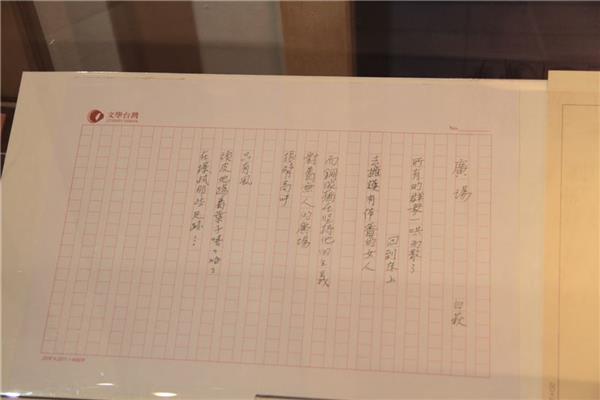 文學台灣
LITERARY TAIWAN
No.
廣場
白萩
所有的群眾一哄而散了
回到床上
去擁護有体香的女人
而銅像猶在堅持他的主義
對著無人的廣場
振臂高呼
只有風
頑皮地踢著葉子嘻々哈々
在擦拭那些足跡…